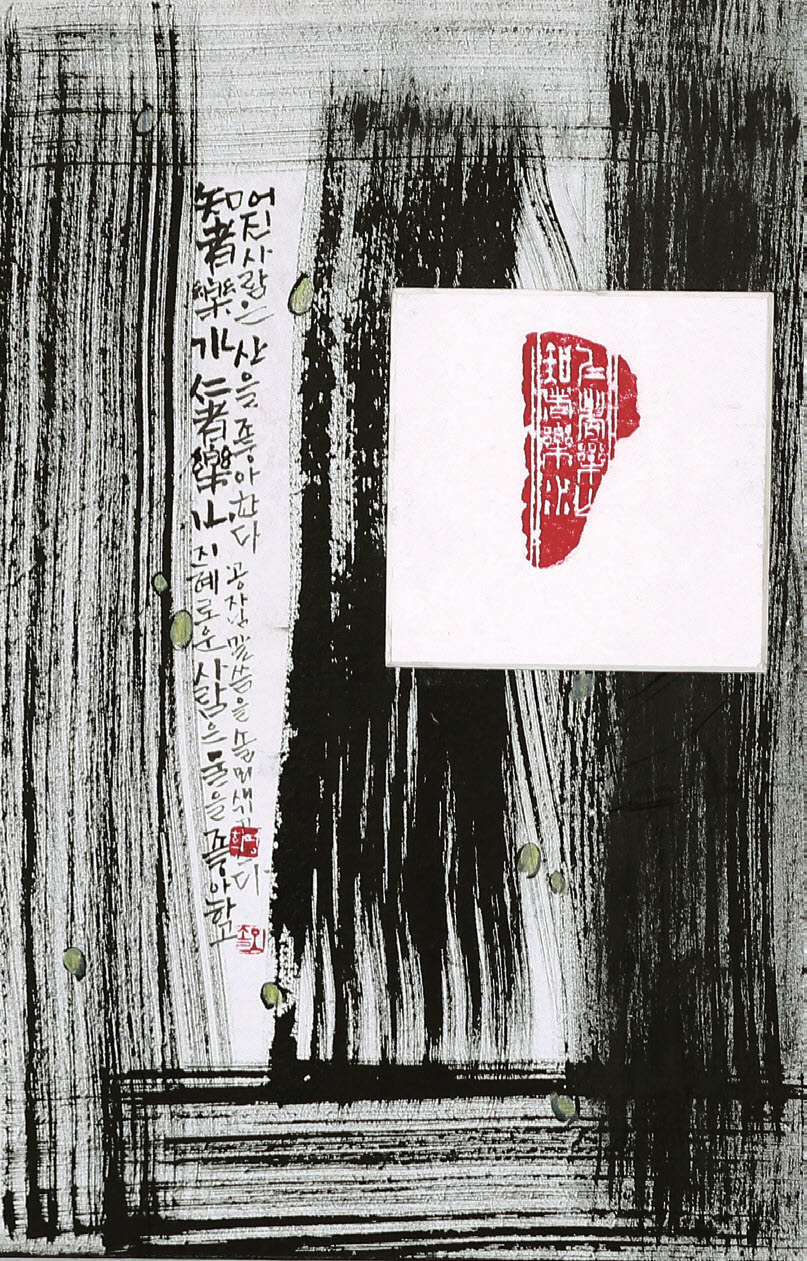 知者樂水仁者樂山 지혜로운 사람은 물을 좋아하고
어진 사람은 산을 좋아한다 공자 말씀을 솔뫼 새기고
仁者樂山
知者樂水